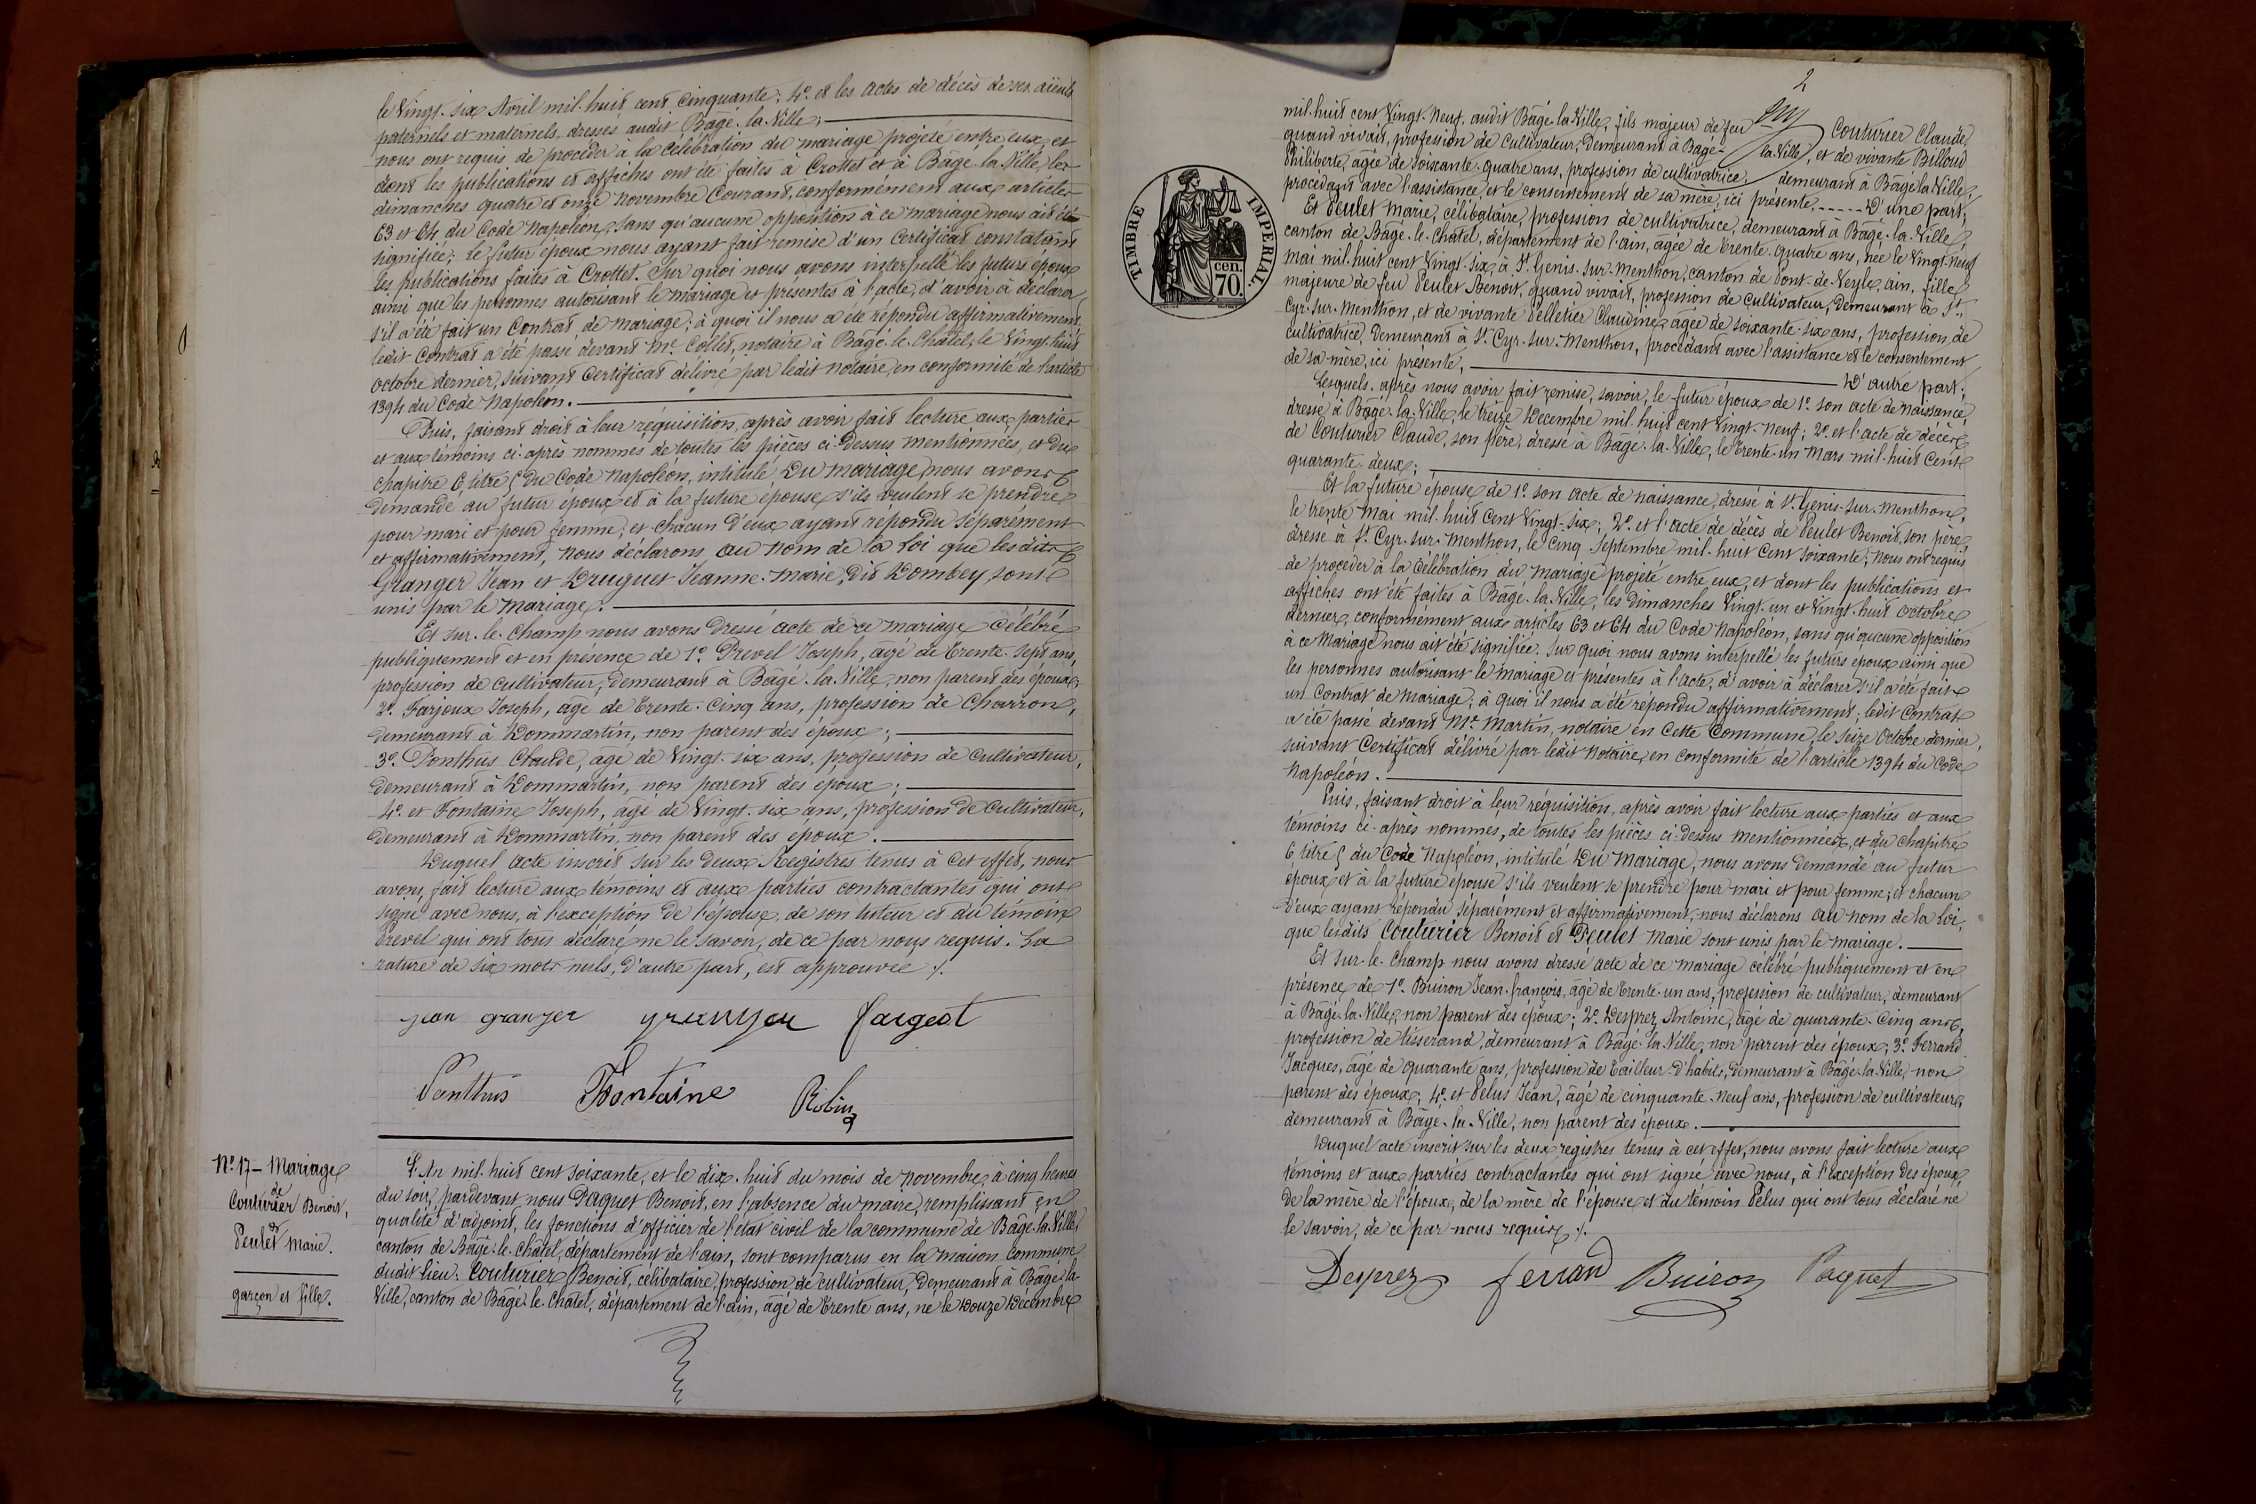 le Vingt-six Avril mil-huit cent cinquante; 4º et les actes de décès de ses aïeuls
paternels et maternels dressés audit Bâgé-la-Ville;
nous ont requis de procéder à la célébration du mariage projeté entre eux, et
dont les publications et affiches ont été faites à Crottet et à Bâgé-la-Ville, les
dimanches quatre et onze novembre Courant, conformément aux articles
63 et 64 du Code Napoléon, sans qu'aucune opposition à ce mariage nous ait été
signifiée; Le futur époux nous ayant fait remise d'un certificat constatant
les publications faites à Crottet. Sur quoi nous avons interpellé les futurs époux
ainsi que les personnes autorisant le mariage et présentes à l'acte, d'avoir à déclarer
s'il a été fait un Contrat de mariage; à quoi il nous a été répondu affirmativement;
ledit Contrat a été passé devant Me Collet, notaire à Bâgé-le-Châtel, le Vingt-huit
octobre dernier, suivant Certificat délivré par ledit notaire, en conformité de l'article
1394 du Code Napoléon.
Puis, faisant droit à leur réquisition, après avoir fait lecture aux parties
et aux témoins ci-après nommés de toutes les pièces ci-dessus mentionnées, et du
chapitre 6 titre 5 du Code Napoléon, intitulé Du Mariage, nous avons
demandé au futur époux et à la future épouse s'ils veulent se prendre
pour mari et pour femme; et chacun d'eux ayant répondu séparément
et affirmativement, Nous déclarons au nom de la Loi que lesdits
Granger Jean et Druguet Jeanne-Marie, dit Dombey sont
unis par le mariage.
Et sur-le-champ nous avons dressé acte de ce mariage célébré
publiquement et en présence de 1º Prevel Joseph, âgé de trente-sept ans,
profession de cultivateur, demeurant à Bâgé-la-Ville, non parent des époux;
2º Farjoux Joseph, âgé de trente-cinq ans, profession de Charron,
demeurant à Dommartin, non parent des époux;
3º Ponthus Claude, âgé de Vingt-six ans, profession de cultivateur,
demeurant à Dommartin, non parent des époux;
4º et Fontaine Joseph, âgé de Vingt-six ans, profession de cultivateur,
demeurant à Dommartin, non parent des époux.
Duquel acte inscrit sur les deux Registres tenus à cet effet, nous
avons fait lecture aux témoins et aux parties contractantes qui ont
signé avec nous, à l'exception de l'épouse, de son tuteur et du témoin
Prevel qui ont tous déclaré ne le savoir, de ce par nous requis. La
rature de six mots nuls, d'autre part, est approuvée ./.
jean granger granger fargeot
Ponthus Fontaine Robin
Nº 17 - Mariage
de
Couturier Benoit,
et
Peulet Marie.
garçon et fille.
L'An mil-huit cent soixante, et le dix-huit du mois de novembre, à cinq heures
du soir, pardevant nous Paquet Benoit, en l'absence du maire, remplissant en
qualité d'adjoint, les fonctions d'officier de l'état civil de la commune de Bâgé-la-Ville,
canton de Bâgé-le-Châtel, département de l'ain, sont comparus en la maison Commune
dudit lieu: Couturier Benoit, célibataire, profession de cultivateur, demeurant à Bâgé-la-
Ville, canton de Bâgé-le-Châtel, département de l'ain, âgé de trente ans, né le douze Décembre
2
TIMBRE IMPERIAL.
70 cen.
mil-huit cent Vingt-Neuf, audit Bâgé-la-Ville, fils majeur de feu Couturier Claude,
quand vivait, profession de Cultivateur, Demeurant à Bâgé-la-Ville, et de vivante Billoud
Philiberte, âgée de soixante-quatre ans, profession de cultivatrice, demeurant à Bâgé-la-Ville,
procédant avec l'assistance et le consentement de sa mère, ici présente, D'une part;
Et Peulet Marie, célibataire, profession de cultivatrice, demeurant à Bâgé-la-Ville,
canton de Bâgé-le-Châtel, département de l'ain, âgée de trente-quatre ans, née le Vingt-neuf
Mai mil-huit cent Vingt-six, à St Genis-sur-Menthon, canton de Pont-de-Veyle, ain, fille
majeure de feu Peulet Benoit, quand vivait, profession de Cultivateur, Demeurant à St
Cyr-sur-Menthon, et de vivante Pelletier Claudine, âgée de soixante-six ans, profession de
cultivatrice, demeurant à St Cyr-sur-Menthon, procédant avec l'assistance et le consentement
de sa mère, ici présente, D'autre part;
Lesquels, après nous avoir fait remise, savoir, le futur époux de 1º son acte de naissance,
dressé à Bâgé-la-Ville, le treize Décembre mil-huit cent Vingt-neuf; 2º et l'acte de décès
de Couturier Claude, son père, dressé à Bâgé-la-Ville, le trente-un Mars mil-huit cent
quarante-deux;
Et la future épouse de 1º son acte de naissance, dressé à St Genis-sur-Menthon,
le trente Mai mil-huit cent Vingt-six; 2º et l'acte de décès de Peulet Benoit, son père,
dressé à St Cyr-sur-Menthon, le cinq Septembre mil-huit cent soixante; nous ont requis
de procéder à la célébration du mariage projeté entre eux, et dont les publications et
affiches ont été faites à Bâgé-la-Ville, les dimanches Vingt-un et Vingt-huit octobre
dernier, conformément aux articles 63 et 64 du Code Napoléon, sans qu'aucune opposition
à ce Mariage nous ait été signifiée. Sur quoi nous avons interpellé les futurs époux ainsi que
les personnes autorisant le mariage et présentes à l'acte, d'avoir à déclarer s'il a été fait
un Contrat de mariage; à quoi il nous a été répondu affirmativement; ledit Contrat
a été passé devant Me Martin, notaire en cette Commune, le seize Octobre dernier,
suivant Certificat délivré par ledit Notaire, en conformité de l'article 1394 du Code
Napoléon.
Puis, faisant droit à leur réquisition, après avoir fait lecture aux parties et aux
témoins ci-après nommés, de toutes les pièces ci-dessus mentionnées, et du chapitre
6, titre 5 du Code Napoléon, intitulé Du Mariage, nous avons demandé au futur
époux et à la future épouse s'ils veulent se prendre pour mari et pour femme; et chacun
d'eux ayant répondu séparément et affirmativement, nous déclarons au nom de la Loi,
que lesdits Couturier Benoit et Peulet Marie sont unis par le mariage.
Et sur-le-champ nous avons dressé acte de ce mariage célébré publiquement et en
présence de 1º Buiron Jean-françois, âgé de trente-un ans, profession de cultivateur, demeurant
à Bâgé-la-Ville, non parent des époux; 2º Desprez Antoine, âgé de quarante-cinq ans,
profession de tisserand, demeurant à Bâgé-la-Ville, non parent des époux; 3º Ferrand
Jacques, âgé de quarante ans, profession de tailleur-d'habits, demeurant à Bâgé-la-Ville, non
parent des époux; 4º et Pelus Jean, âgé de cinquante-neuf ans, profession de cultivateur,
demeurant à Bâgé-la-Ville, non parent des époux.
Duquel acte inscrit sur les deux registres tenus à cet effet, nous avons fait lecture aux
témoins et aux parties contractantes qui ont signé avec nous, à l'exception des époux,
de la mère de l'époux, de la mère de l'épouse et du témoin Pelus qui ont tous déclaré ne
le savoir, de ce par nous requis ./.
Desprez ferrand Buiron Paquet